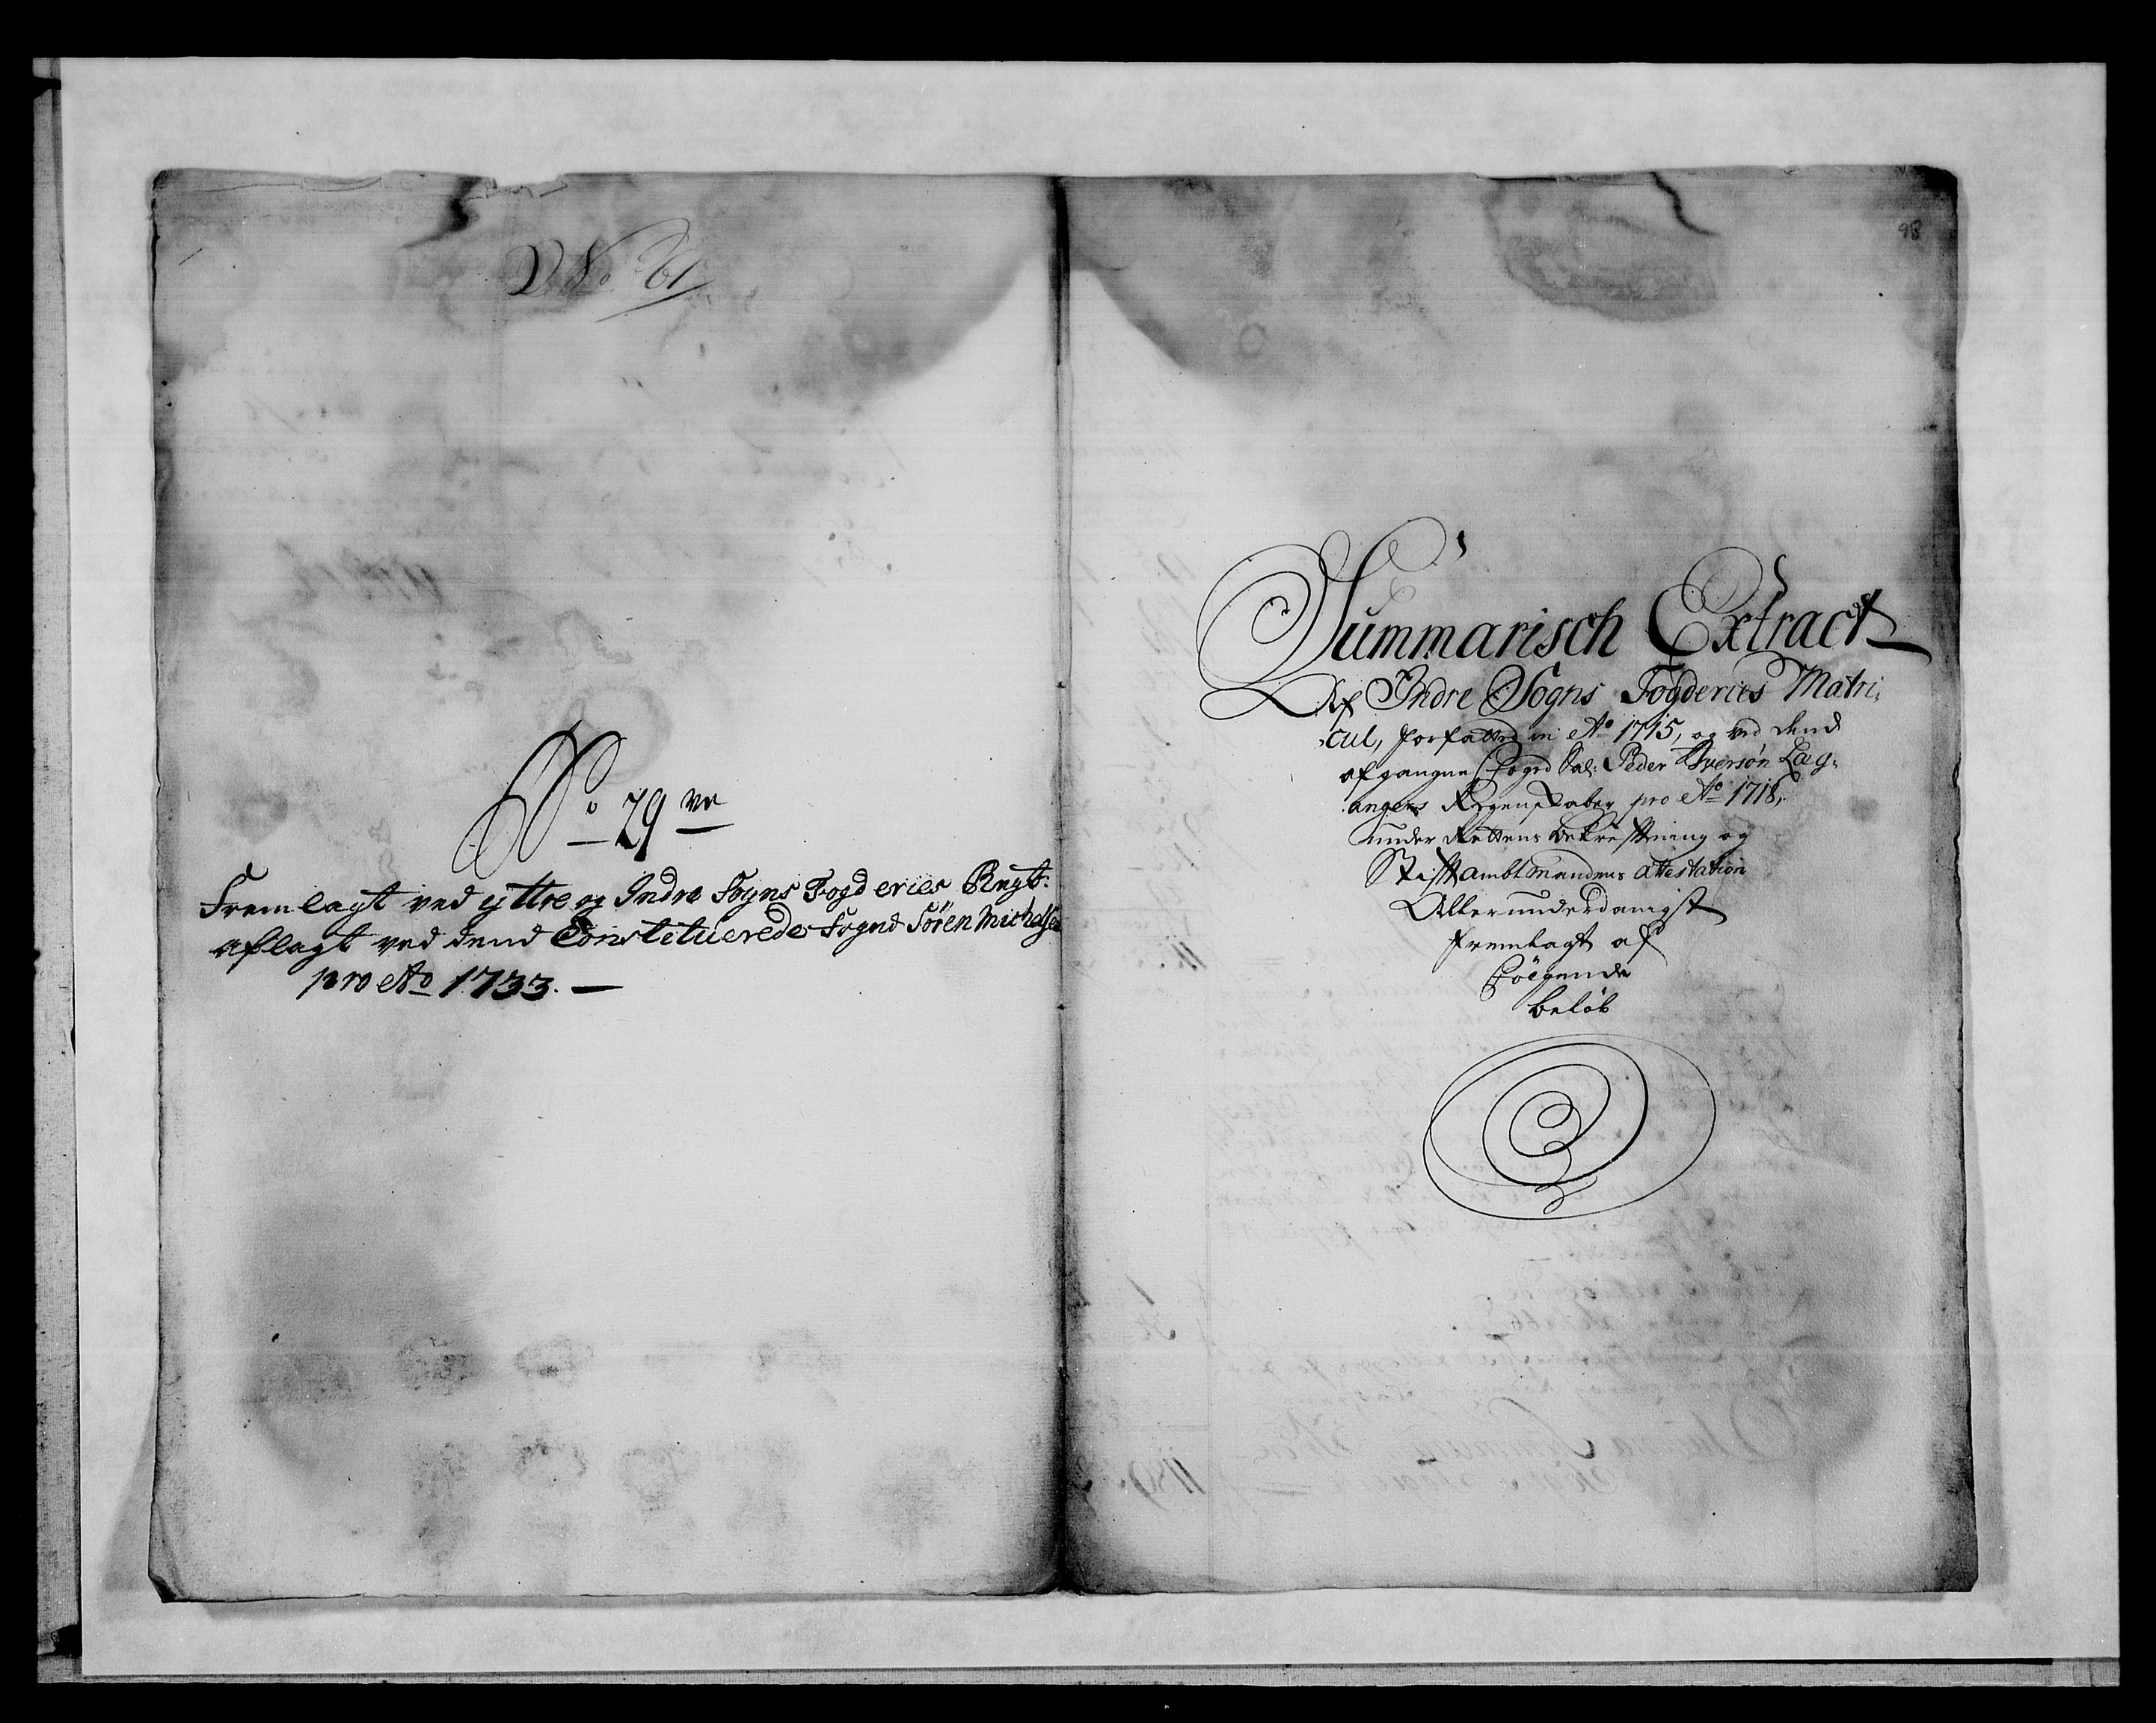 No 61
No 29 ve
Fremlagt ved ÿttre og Indre Sogns Fogderies Regb:
aflagt ved dend Constituerede Fogend Sören Michelsen
pro Ao 1733. —
98
Summarisch Extract
Af Indre Sogns Fogderies Matri-
cul, forfatted in Ao 1715, og ved dend
afgangne Foged Sal: Peder Iversøn Lag-
angers Regenskaber pro Ao 1718,
under Rettens bekreftning og
Stiftambtmandens attestation
Allerunderdanigst
fremlagt af
følgende
beløb